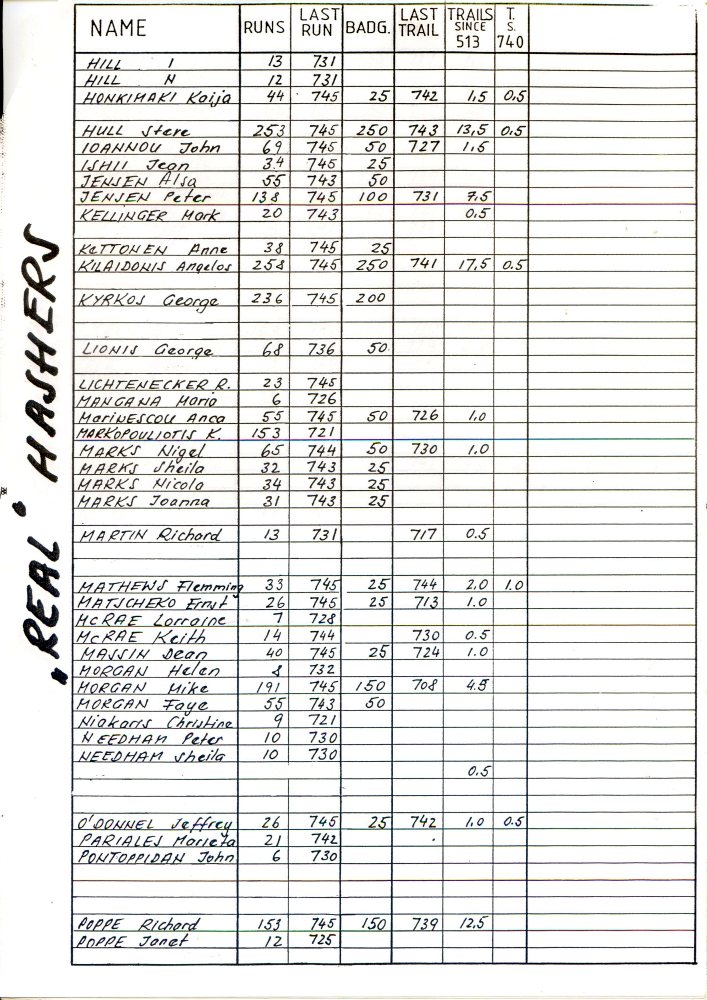 NAME RUNS LAST RUN BADG. LAST TRAIL TRAILS SINCE 513 T. S. 740
HILL I 13 731
HILL N 12 731
HONKIMAKI Kaija 44 745 25 742 1,5 0,5
HULL Steve 253 745 250 743 13,5 0,5
IOANNOU John 69 745 50 727 1,5
ISHII Jean 34 745 25
JENSEN Alsa 55 743 50
JENSEN Peter 138 745 100 731 7,5
KELLINGER Mark 20 743 0,5
KETTONEN Anne 38 745 25
KILAIDONIS Angelos 258 745 250 741 17,5 0.5
KYRKOS George 236 745 200
LIONIS George 68 736 50
LICHTENECKER R. 23 745
MANGANA Maria 6 726
MARINESCOU Anca 55 745 50 726 1,0
MARKOPOULIOTIS K. 153 721
MARKS Nigel 65 744 50 730 1.0
MARKS Sheila 32 743 25
MARKS Nicola 34 743 25
MARKS Joanna 31 743 25
MARTIN Richard 13 731 717 0.5
MATHEWS Flemming 33 745 25 744 2.0 1.0
MATSCHEKO Ernst 26 745 25 713 1.0
McRAE Lorraine 7 728
McRAE Keith 14 744 730 0.5
MASSIN Dean 40 745 25 724 1.0
MORGAN Helen 8 732
MORGAN Mike 191 745 150 708 4.5
MORGAN Faye 55 743 50
Niakaris Christine 9 721
NEEDHAM Peter 10 730
NEEDHAM Sheila 10 730
0.5
O'DONNEL Jeffrey 26 745 25 742 1,0 0.5
PARIALES Marieta 21 742
PONTOPPIDAN John 6 730
POPPE Richard 153 745 150 739 12.5
POPPE Janet 12 725
„REAL" HASHERS